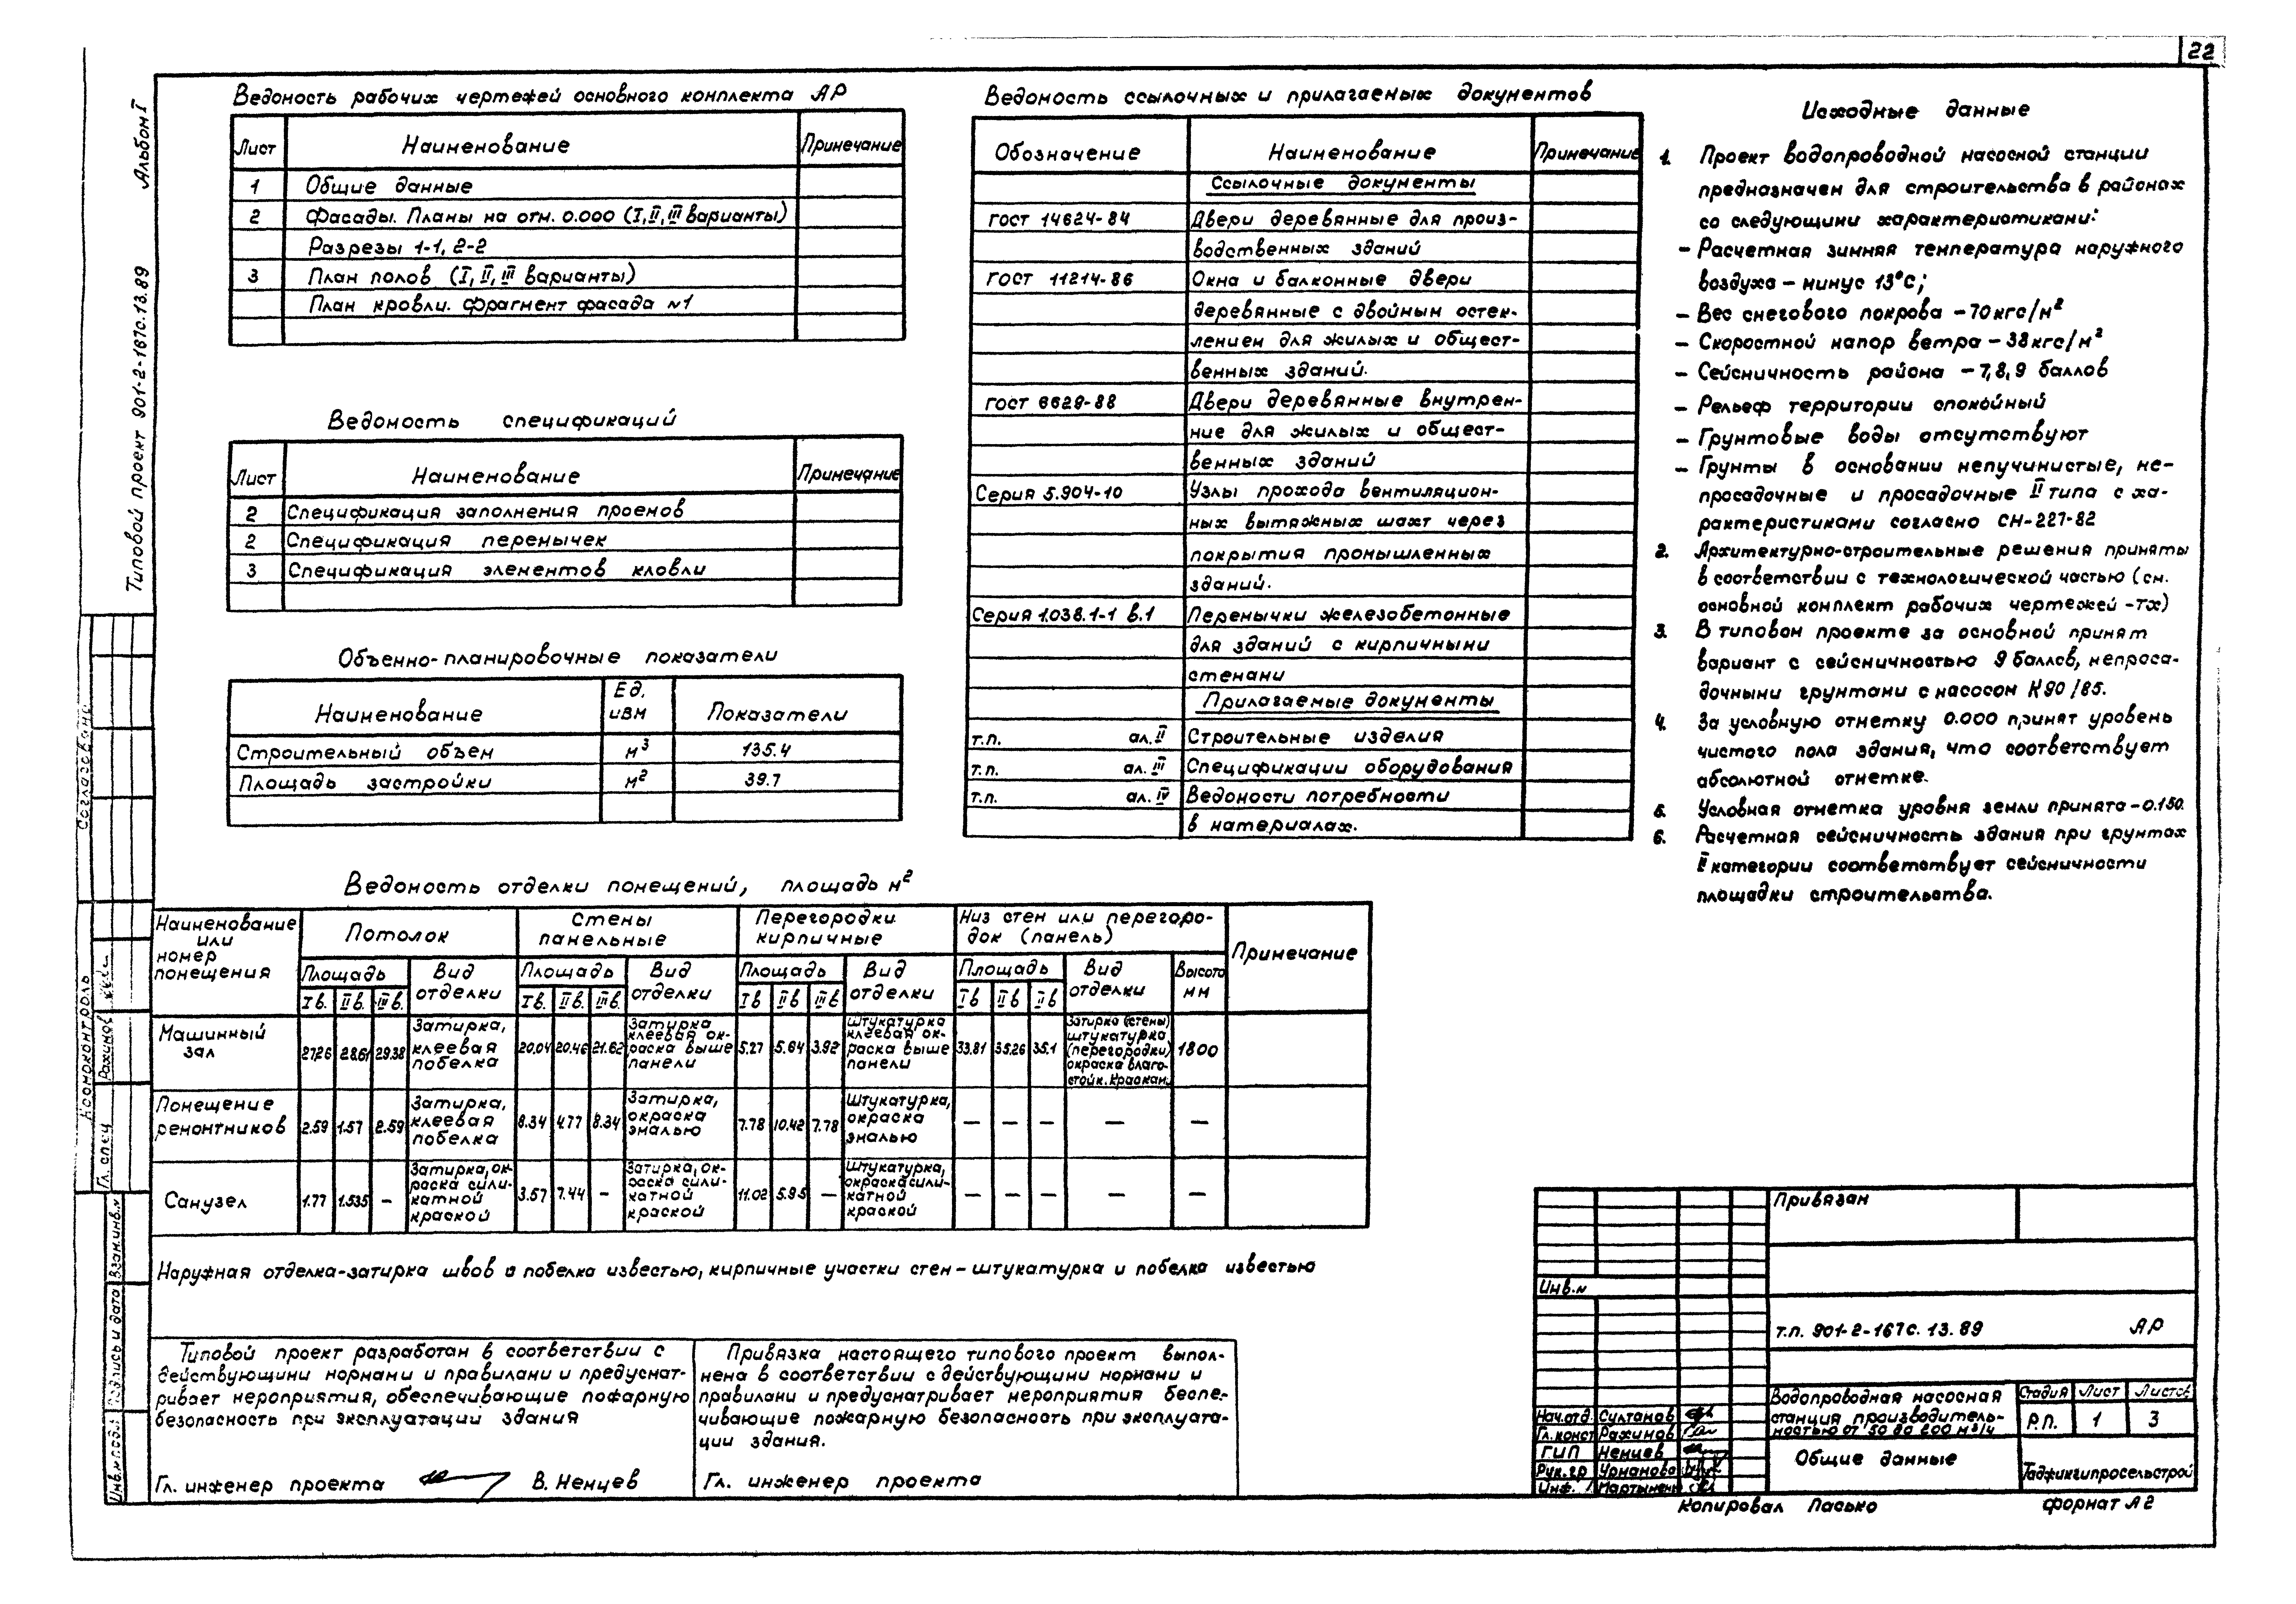 22
Альбом I
Типовой проект 901-2-167с.13.89
Ведомость рабочих чертежей основного комплекта АР
Лист Наименование Примечание
1 Общие данные
2 Фасады. Планы на отм. 0.000 (I, II, III варианты)
Разрезы 1-1, 2-2
3 План полов (I, II, III варианты)
План кровли. Фрагмент фасада №1
Ведомость спецификаций
Лист Наименование Примечание
2 Спецификация заполнения проемов
2 Спецификация перемычек
3 Спецификация элементов кловли
Объемно-планировочные показатели
Наименование Ед. изм Показатели
Строительный объем м³ 135.4
Площадь застройки м² 39.7
Ведомость ссылочных и прилагаемых документов
Обозначение Наименование Примечание
Ссылочные документы
ГОСТ 14624-84 Двери деревянные для произ-
водственных зданий
ГОСТ 11214-86 Окна и балконные двери
деревянные с двойным остек-
лением для жилых и общест-
венных зданий.
ГОСТ 6629-88 Двери деревянные внутрен-
ние для жилых и общест-
венных зданий
Серия 5.904-10 Узлы прохода вентиляцион-
ных вытяжных шахт через
покрытия промышленных
зданий.
Серия 1.038.1-1 в.1 Перемычки железобетонные
для зданий с кирпичными
стенами
Прилагаемые документы
т.п. ал. II Строительные изделия
т.п. ал. III Спецификации оборудования
т.п. ал. IV Ведомости потребности
в материалах.
Исходные данные
1. Проект водопроводной насосной станции
предназначен для строительства в районах
со следующими характеристиками:
- Расчетная зимняя температура наружного
воздуха - минус 13°С;
- Вес снегового покрова - 70 кгс/м²
- Скоростной напор ветра - 38 кгс/м²
- Сейсмичность района - 7, 8, 9 баллов
- Рельеф территории спокойный
- Грунтовые воды отсутствуют
- Грунты в основании непучинистые, не-
просадочные и просадочные II типа с ха-
рактеристиками согласно СН-227-82
2. Архитектурно-строительные решения приняты
в соответствии с технологической частью (см.
основной комплект рабочих чертежей -ТХ)
3. В типовом проекте за основной принят
вариант с сейсмичностью 9 баллов, непроса-
дочными грунтами с насосом К90/85.
4. За условную отметку 0.000 принят уровень
чистого пола здания, что соответствует
абсолютной отметке.
5. Условная отметка уровня земли принята -0.150.
6. Расчетная сейсмичность здания при грунтах
II категории соответствует сейсмичности
площадки строительства.
Ведомость отделки помещений, площадь м²
Наименование или номер помещения Потолок Стены панельные Перегородки кирпичные Низ стен или перегоро-док (панель) Примечание
Площадь Вид отделки Площадь Вид отделки Площадь Вид отделки Площадь Вид отделки Высота мм
I в. II в. III в. I в. II в. III в. I в II в III в I в II в II в
Машинный зал 27.26 28.61 29.38 Затирка, клеевая побелка 20.04 20.46 21.62 Затирка клеевая ок-раска выше панели 5.27 5.64 3.92 Штукатурка клеевая ок-раска выше панели 33.81 35.26 35.1 Затирка (стены) штукатурка (перегородки) окраска влаго-стойк. краскам. 1800
Помещение ремонтников 2.59 1.57 2.59 Затирка, клеевая побелка 8.34 4.77 8.34 Затирка, окраска эмалью 7.78 10.42 7.78 Штукатурка, окраска эмалью — — — — —
Санузел 1.77 1.535 — Затирка, ок-раска сили-катной краской 3.57 7.44 — Затирка, ок-раска сили-катной краской 11.02 5.95 — Штукатурка, окраска сили-катной краской — — — — —
Наружная отделка-затирка швов и побелка известью, кирпичные участки стен - штукатурка и побелка известью
Типовой проект разработан в соответствии с
действующими нормами и правилами и предусмат-
ривает мероприятия, обеспечивающие пожарную
безопасность при эксплуатации здания
Гл. инженер проекта В. Немцев
Привязка настоящего типового проект выпол-
нена в соответствии с действующими нормами и
правилами и предусматривает мероприятия беспе-
чивающие пожарную безопасность при эксплуата-
ции здания.
Гл. инженер проекта
Согласовано
Нормоконтроль
Гл. спец Рахимов
Взам.инв.№
Подпись и дата
Инв.№подл
Привязан
Инв.№
т.п. 901-2-167с.13.89 АР
Нач.отд. Султанов
Гл.конст Рахимов
ГИП Немцев
Рук.гр Урманова
Инж.
Водопроводная насосная
станция производитель-
ностью от 50 до 200 м³/ч
Стадия Лист Листов
Р.П. 1 3
Общие данные
Таджикгипросельстрой
Копировал Пасько формат А2